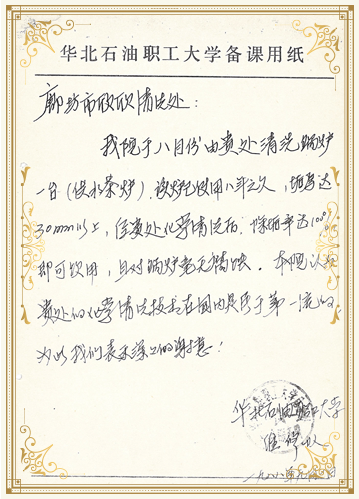 华北石油职工大学备课用纸
廊坊市欧欣清洗处：
我院于八月份由贵处清洗锅炉
一台（供水茶炉）。该炉已使用八年之久，垢厚达
30mm以上，经贵处化学清洗后，除垢率达100%
即可饮用，且对锅炉毫无腐蚀。本院认为
贵处的化学清洗技术在国内是属于第一流的
为此我们表示深切的谢意！
华北石油职工大学
一九八八年九月